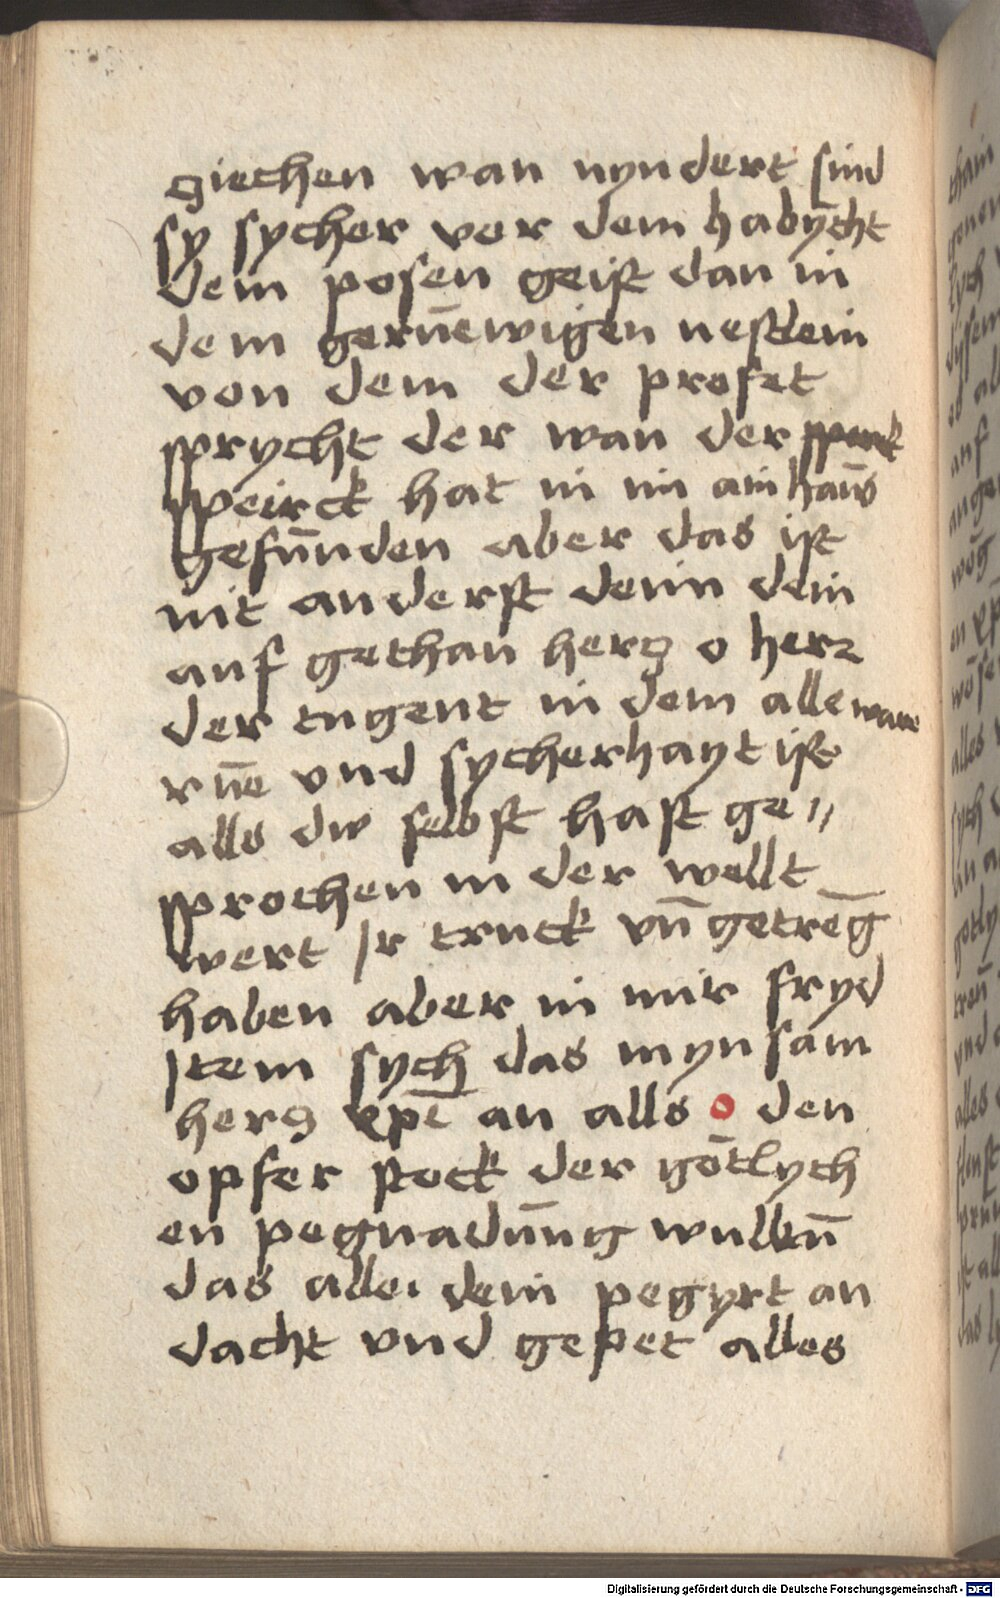 giechen wan nyndert sind
sy sycher vor dem habycht
dem posen geist dan in
dem gerūewigen nestlein
von dem der profet
sprycht der wan der
speirck hat in im ain haūs
gefūnden aber das ist
nit anderst denn dein
auf gethan hercz o herr
der tugent in dem alle ware
rūe vnd sycherhayt ist
alls dw selbst hast ge〃
sprochen in der wellt
wert Ir truck vn̄ getrēg
haben aber in mir fryd
Item sych das mynsam
hercz xp̄i an alls o den
opfer stock der gōtlych
en pegnadūng
das alle dein pegyrt an
dacht vnd gepet alles
Digitalisierung gefördert durch die Deutsche Forschungsgemeinschaft - DFG